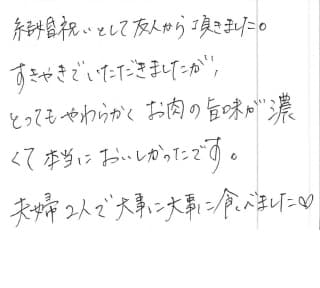 結婚祝いとして友人から頂きました。
すきやきでいただきましたが、
とってもやわらかく お肉の旨味が濃
くて本当においしかったです。
夫婦2人で大事に大事に食べました♡